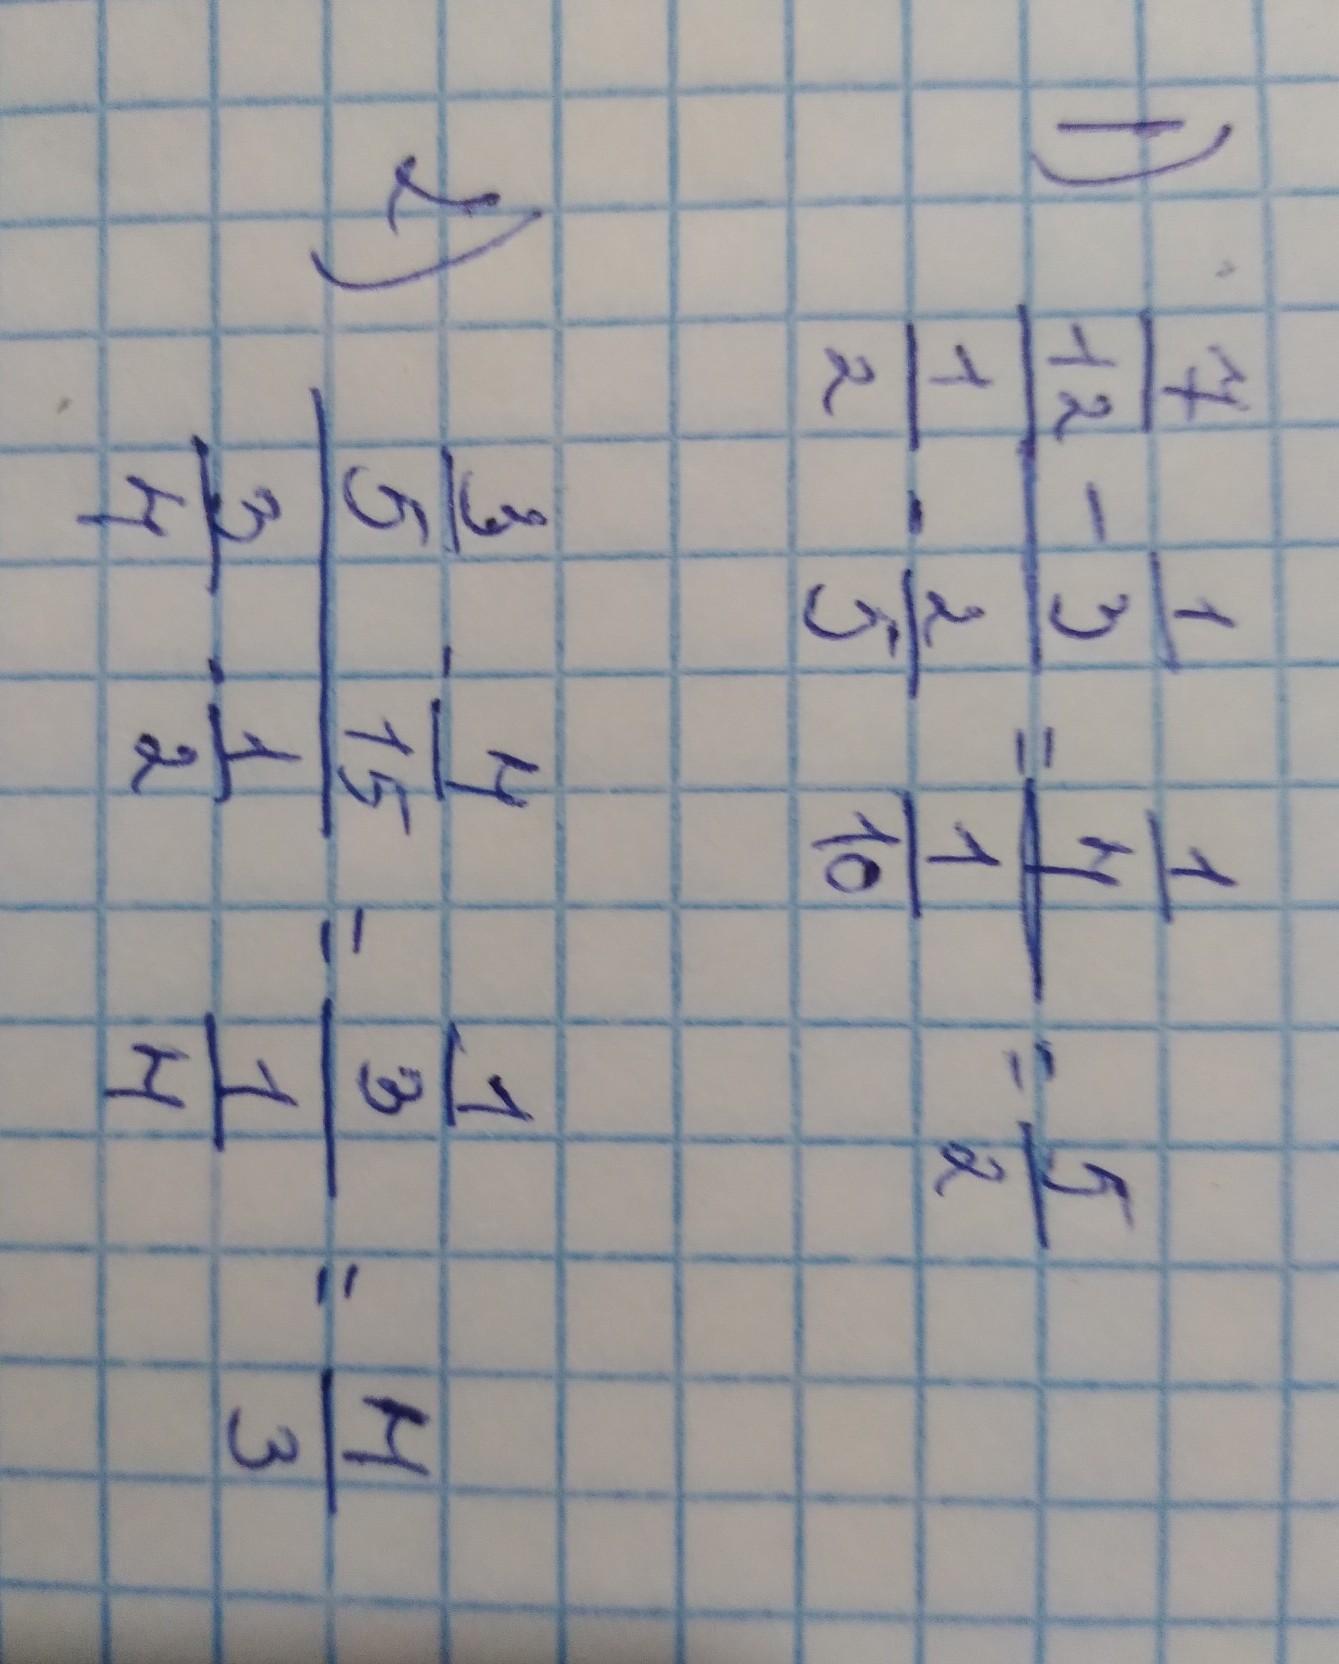 1) (7/12 - 1/3) / (1/2 - 2/5) = (1/4) / (1/10) = 5/2
2) (3/5 - 4/15) / (3/4 - 1/2) = (1/3) / (1/4) = 4/3